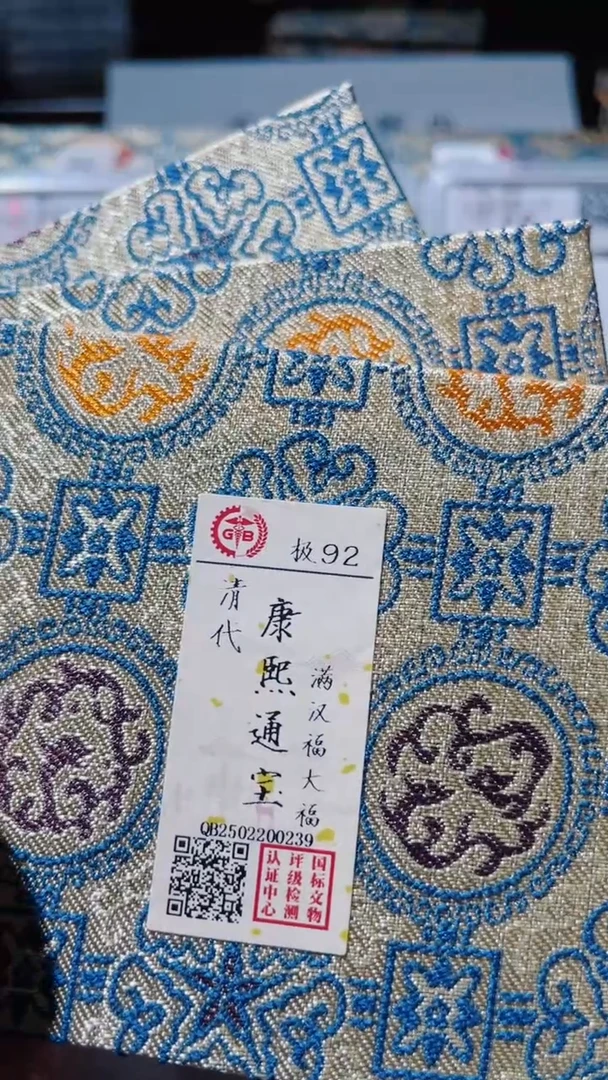 GB
极92
清代
康熙通宝
满汉福大福
QB2502200239
国标文物
评级检测
认证中心